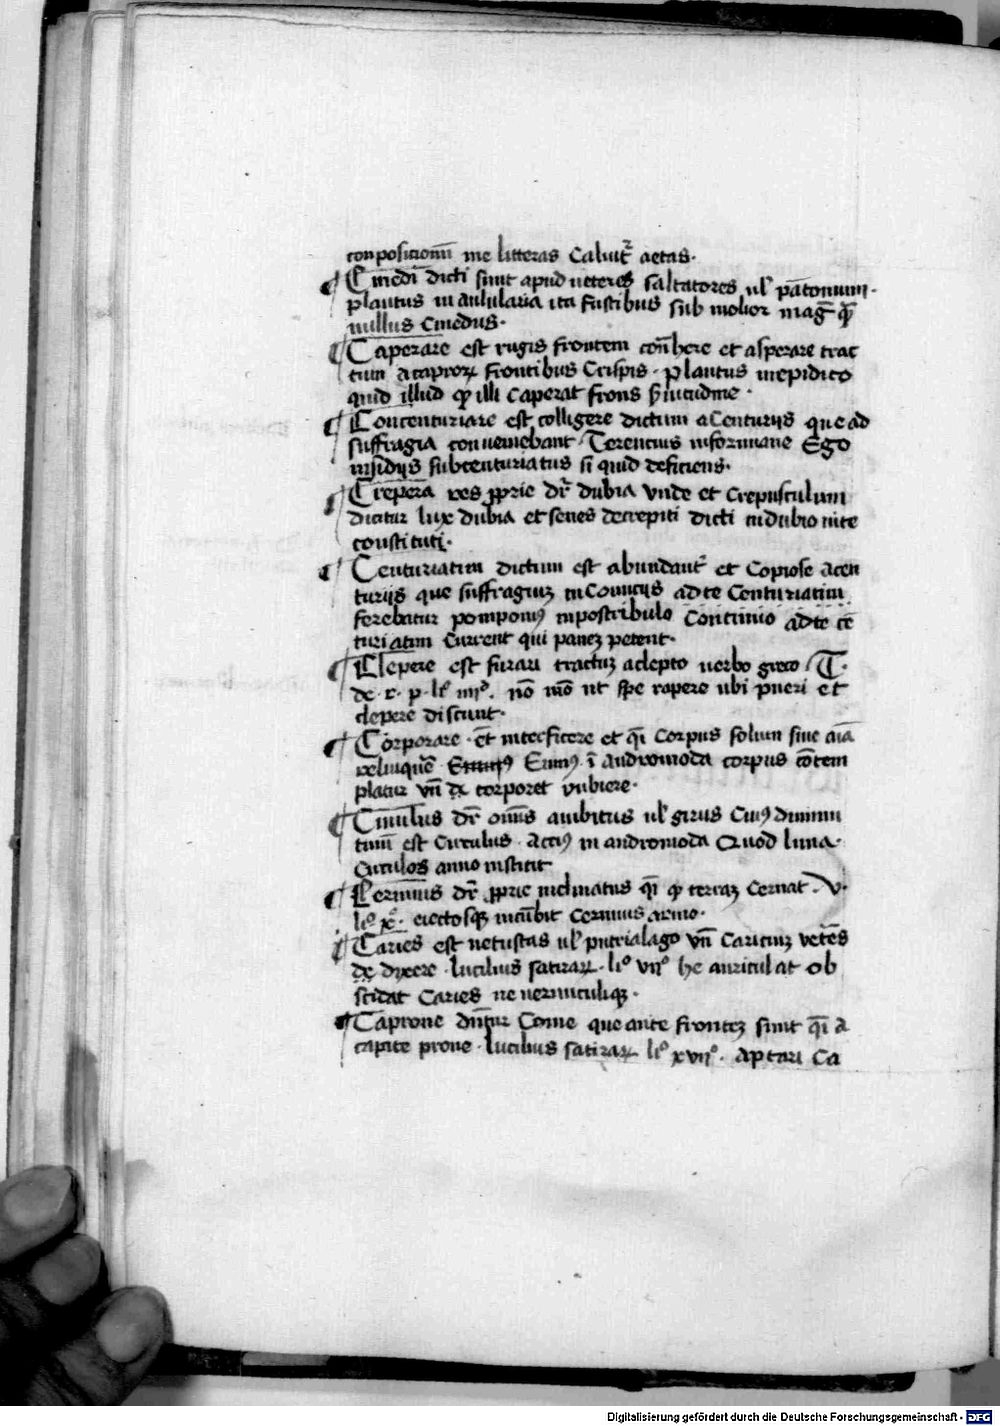 conposicionū me litteras Caluit᷑ aetas·
¶ Cinedi dicti sunt apud ueteres saltatores ul̕ pātomimi·
plautus in aulularia ita fustibus sub molior mag̅ q̄ꝫ
nullus Cinedus·
¶ Caperare est rugis frontem cōt̄here et asperare trac
tum a caproꝝ frontibus Crispis· plautus inepidico
quid illud ꝙ illi Caperat frons
¶ Concenturiare est colligere dictum aCenturijs que ad
suffragia conueniebant· Terencius informione Ego
insidijs subcenturiatus si quid deficiens·
¶ Crepera res ꝓprie dr̄ dubia vnde et Crepusculum
dicitur lux dubia et senes decrepiti dicti indubio uite
constituti·
¶ Centuriatim dictum est abundant᷑ et Copiose acen
turijs que suffragiuꝫ in Comicijs ad te Centuriatim
ferebatur pomponiꝰ inpostribulo Continuo adte cē
turiatim Current qui paneꝫ petent·
¶ Clepere est furari tractuꝫ aclepto uerbo greco T·
de· r· p· li̅º iiiiº· nō mō ut spe rapere ubi pueri et
clepere discunt·
¶ Corporare· ēt interficere et q̄i Corpus solum sine aīa
relinquē Enniꝰ ī andromoda corpus cōtem
platur vn̄ corporet vubiere·
¶ Cinulus dr̄ om̄s ambitus ul̕ girus Cuiꝰ diminu
tiuū est Circulus· Acciꝰ in andromoda Quod luna·
Circulos anno institit
¶ Cernuus dr̄ ꝓprie inclinatus q̄i ꝙ terraꝫ Cernat· V·
liº xº· eiectosqꝫ incūbit Cernuus armo·
¶ Caries est uetustas ul̕ putrialago vn̄ Carituꝫ vetēs
dixere· lucilius satiraꝝ· liº viiº he auriculat ob
scidat Caries ne uermiculiqꝫ·
¶ Caprone dn̄tur Come que ante fronteꝫ sunt q̄i a
capite prone· lucilius satiraꝝ liº xviiº· aptari Ca
Digitalisierung gefördert durch die Deutsche Forschungsgemeinschaft - DFG